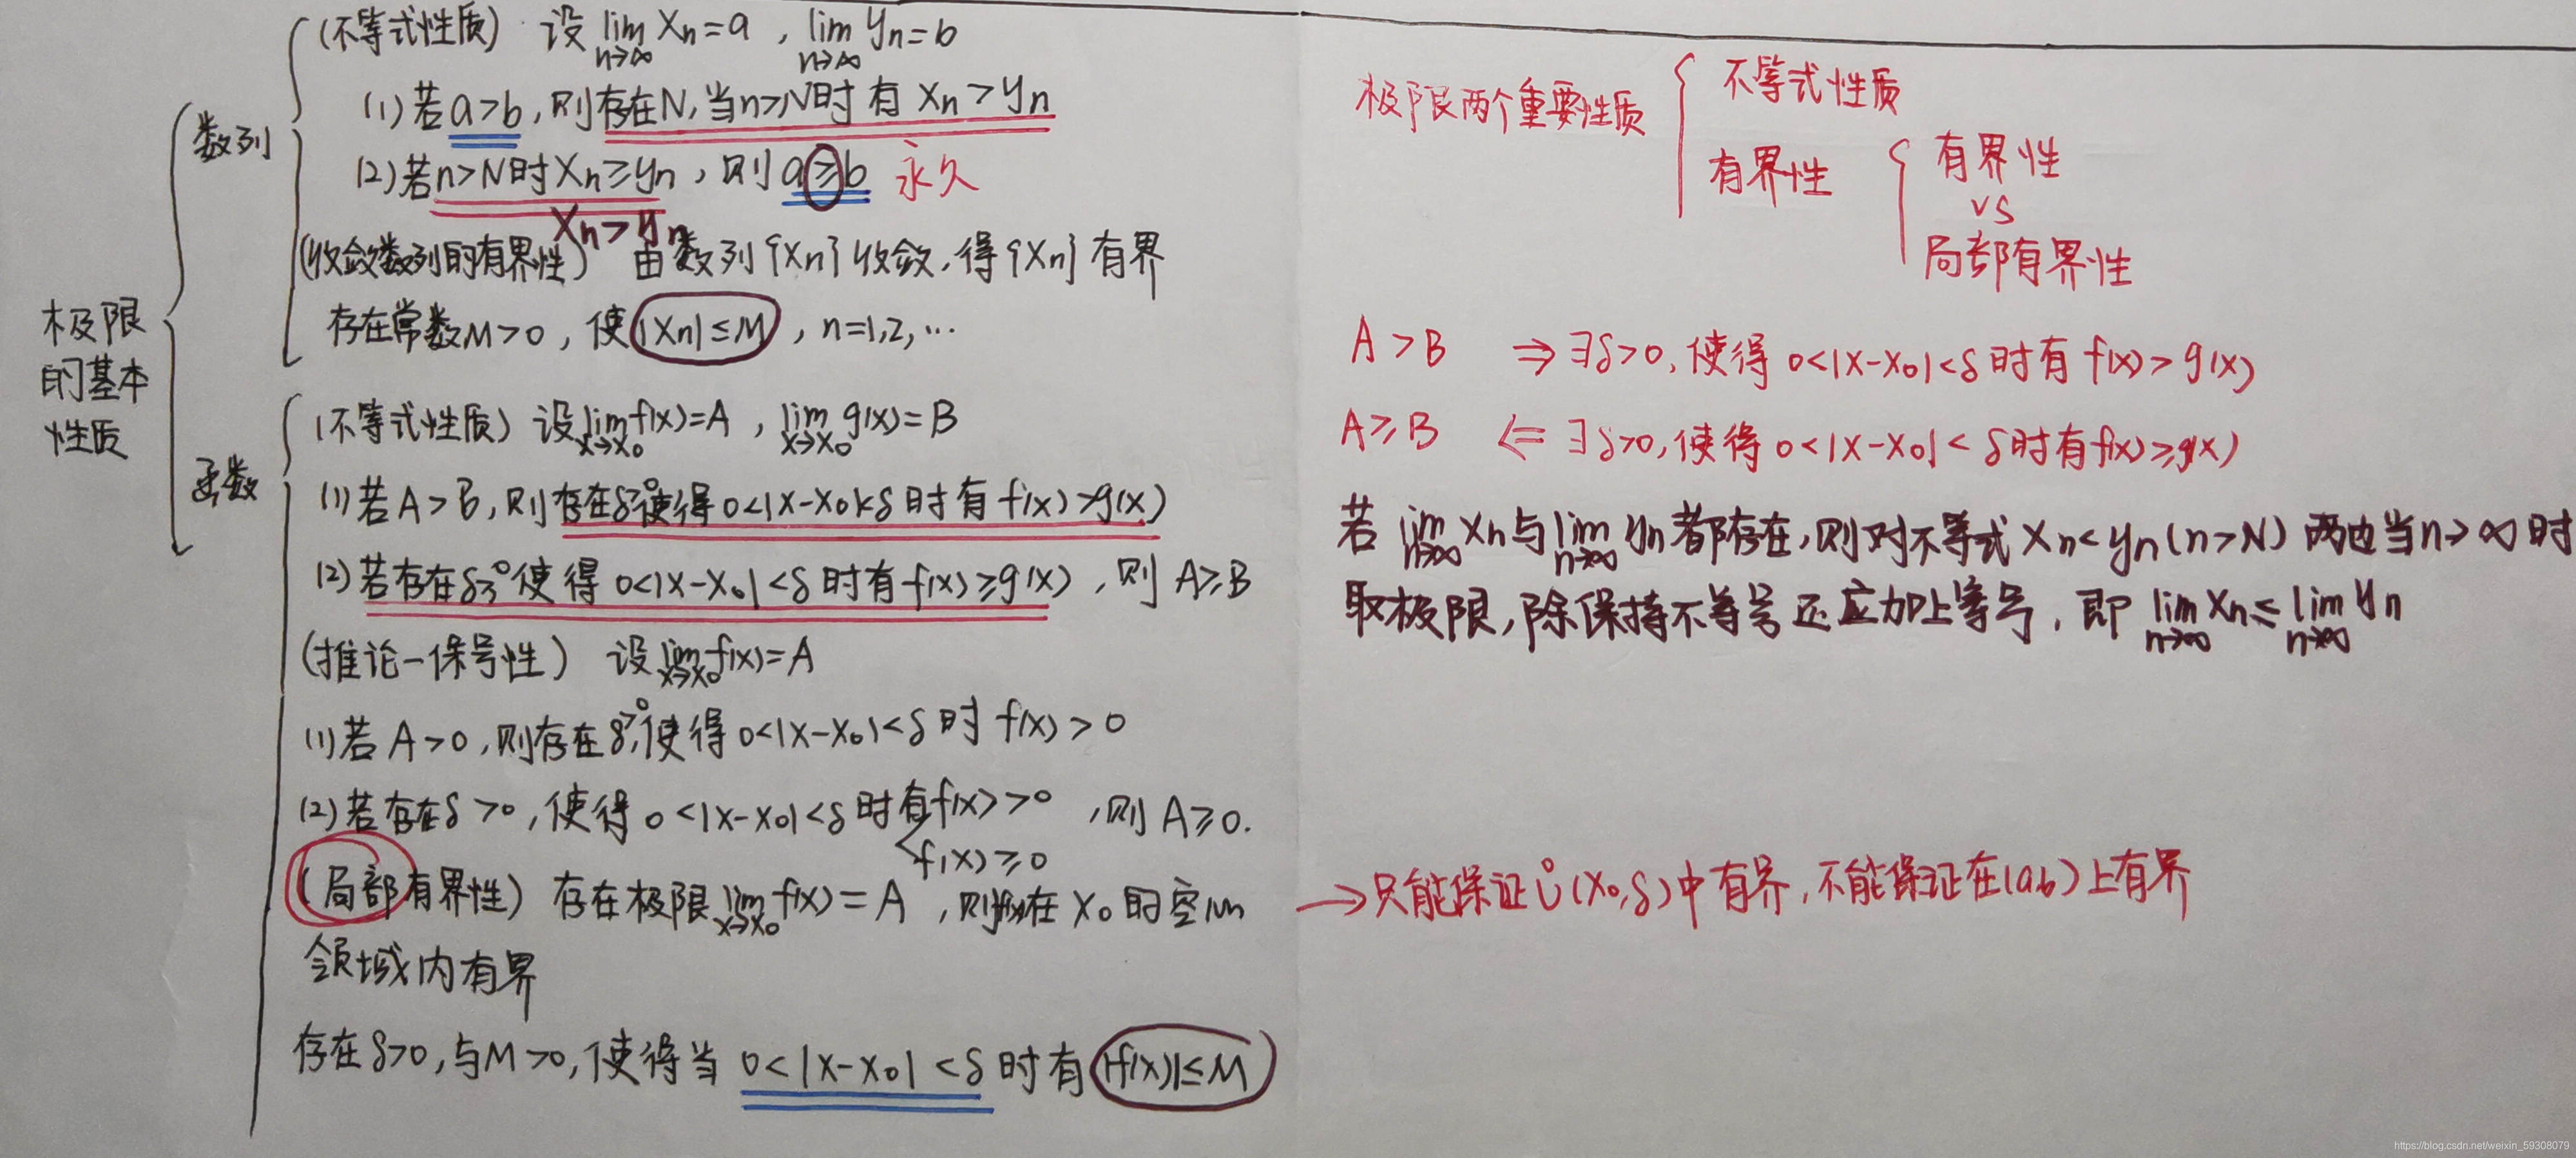 极限
的基本
性质
数列
(不等式性质) 设 lim Xn=a , lim yn=b
n→∞ n→∞
(1)若a>b,则存在N,当n>N时有 Xn>yn
(2)若n>N时Xn≥yn,则a≥b 永久
Xn>yn
(收敛数列的有界性) 由数列{Xn}收敛,得{Xn}有界
存在常数M>0,使|Xn|≤M, n=1,2,…
函数
(不等式性质) 设lim f(x)=A , lim g(x)=B
x→x₀ x→x₀
(1)若A>B,则存在δ>0使得0<|x-x₀|<δ时有f(x)>g(x)
(2)若存在δ>0使得 0<|x-x₀|<δ时有f(x)≥g(x),则 A≥B
(推论-保号性) 设lim f(x)=A
x→x₀
(1)若A>0,则存在δ>0,使得0<|x-x₀|<δ时 f(x)>0
(2)若存在δ>0,使得0<|x-x₀|<δ时有f(x)>0 ,则A≥0.
f(x)≥0
(局部有界性) 存在极限lim f(x)=A ,则f(x)在X₀的空心
x→x₀
领域内有界
存在δ>0,与M>0,使得当 0<|x-x₀|<δ 时有|f(x)|≤M
极限两个重要性质
不等式性质
有界性
有界性
vs
局部有界性
A>B ⇒∃δ>0,使得0<|x-x₀|<δ时有f(x)>g(x)
A≥B ⇐∃δ>0,使得0<|x-x₀|<δ时有f(x)≥g(x)
若 lim Xn与lim yn都存在,则对不等式Xn<yn(n>N)两边当n→∞时
n→∞ n→∞
取极限,除保持不等号还应加上等号,即 lim Xn≤lim yn
n→∞ n→∞
→只能保证Ů(X₀,δ)中有界,不能保证在(a,b)上有界
https://blog.csdn.net/weixin_59308079